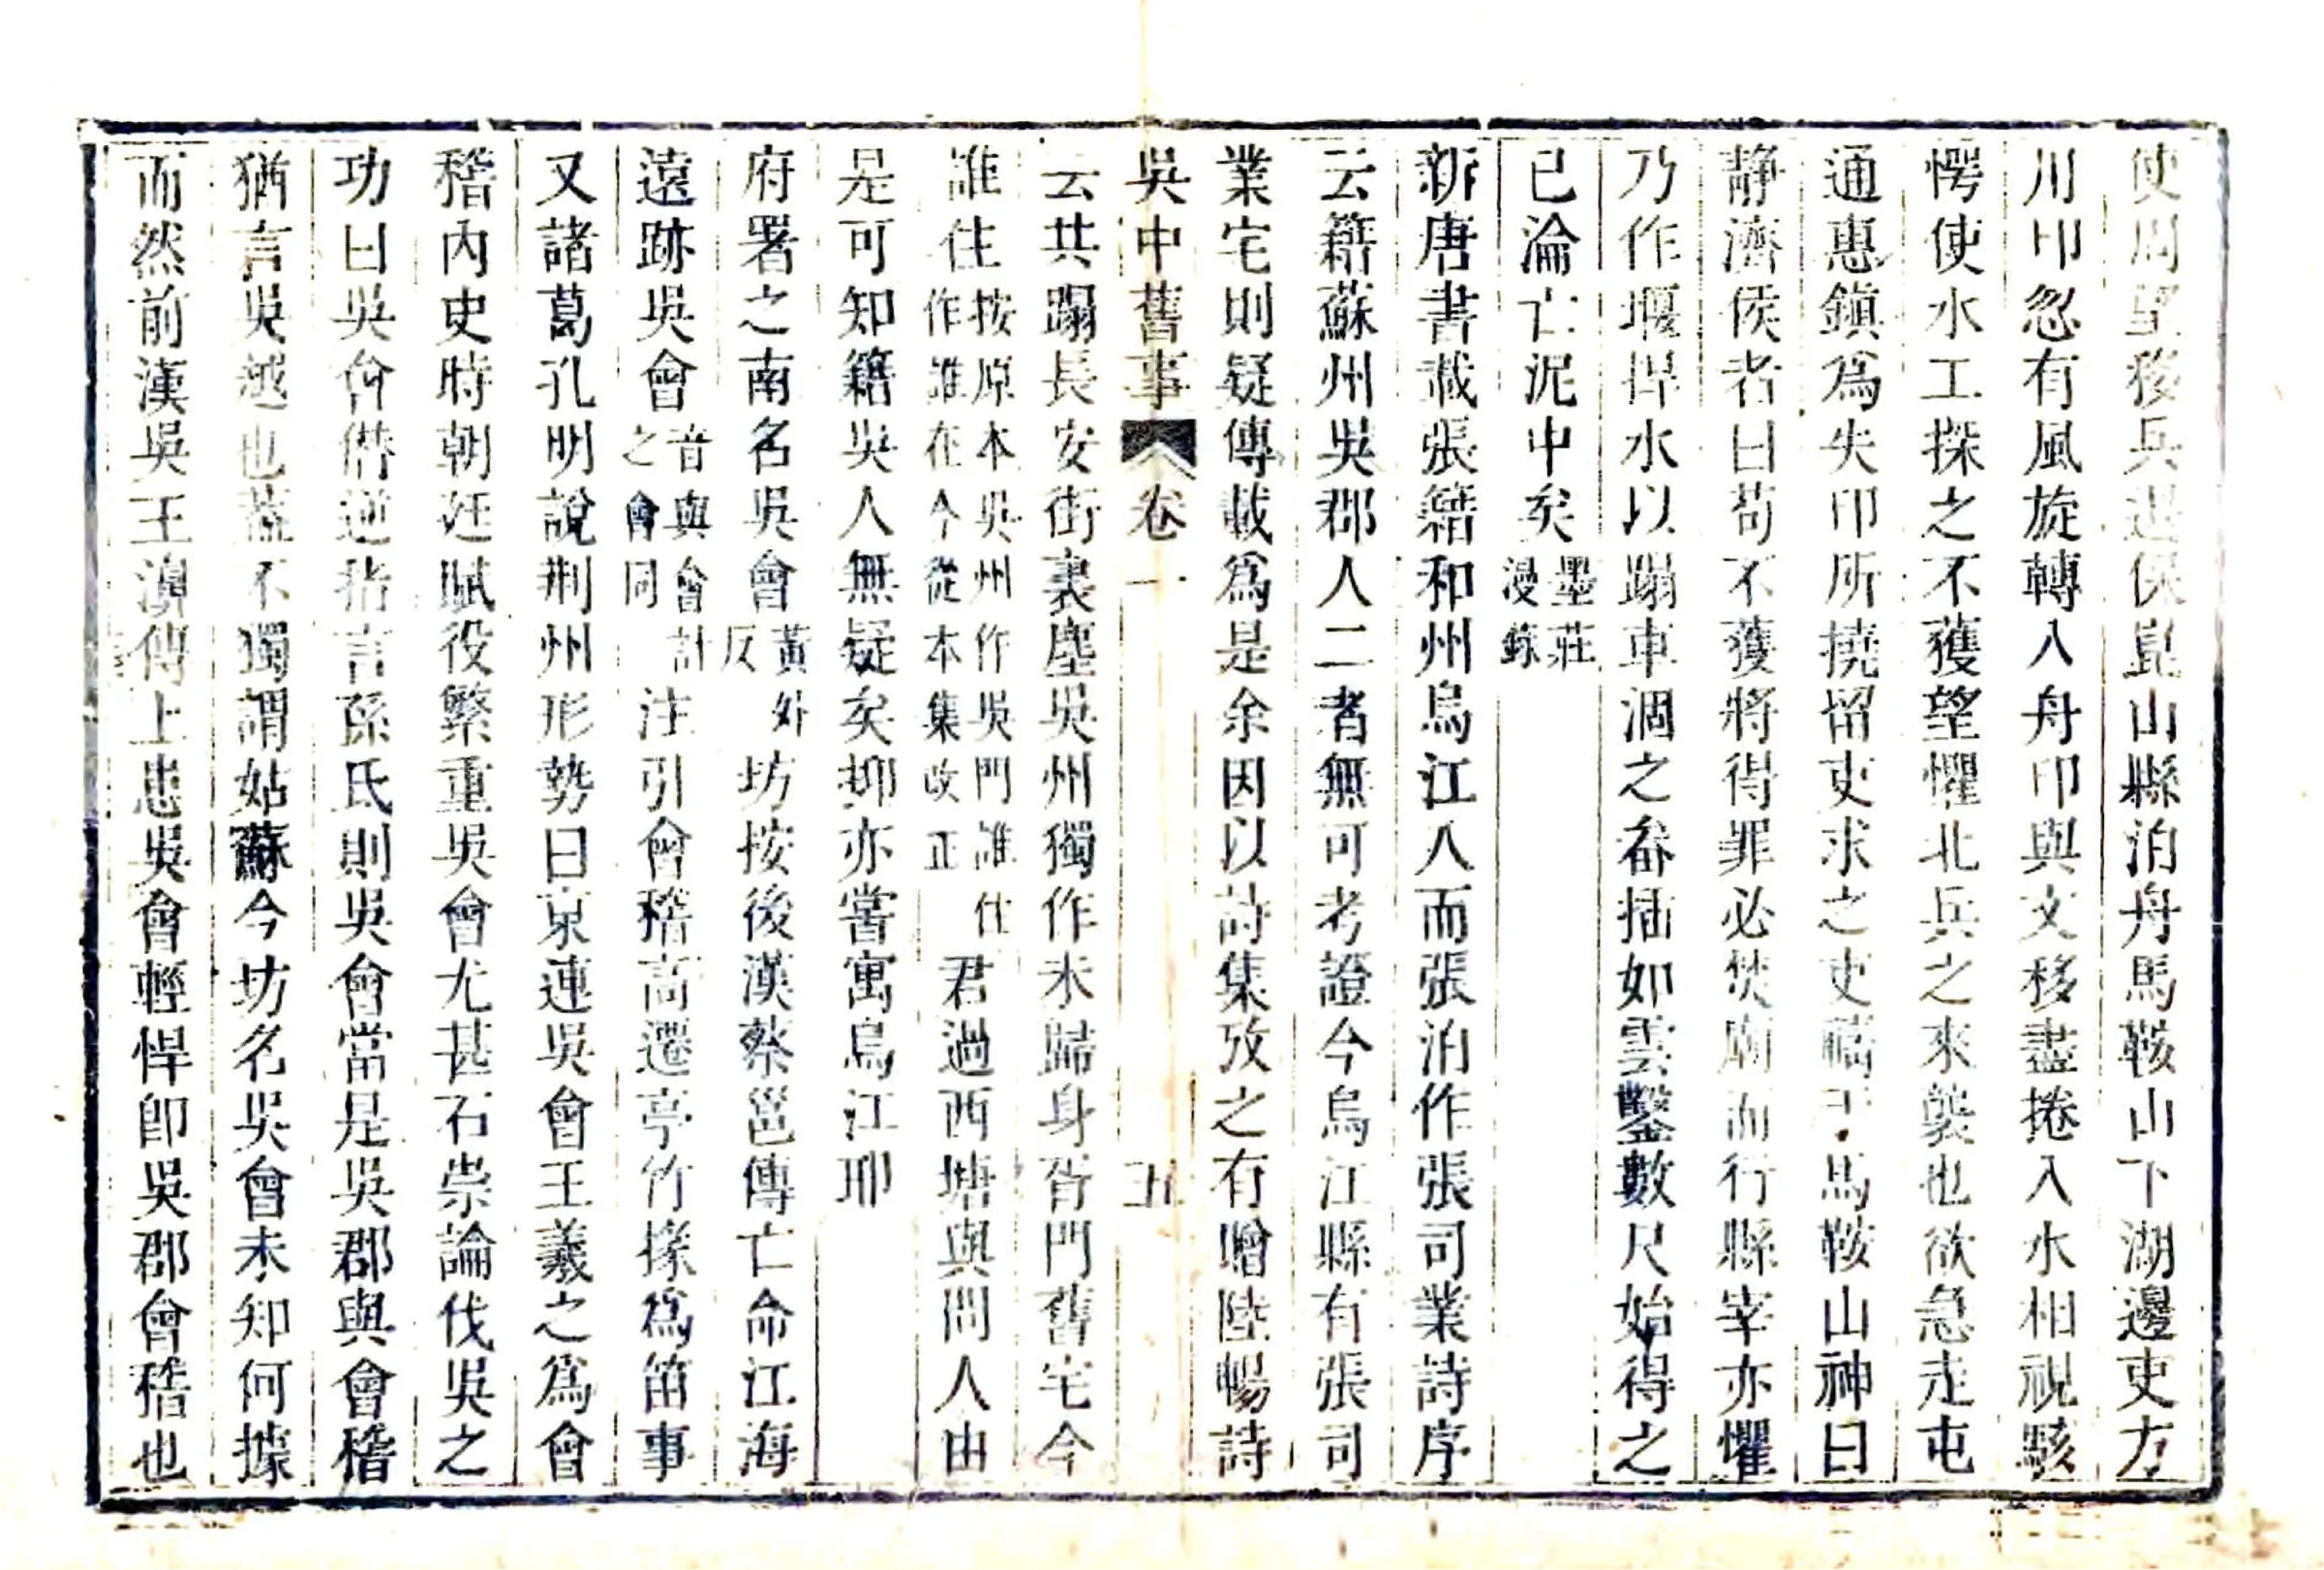 使周望移兵退保崑山縣泊舟馬鞍山下湖邊吏方
川印忽有風旋轉入舟印與文移盡捲入水相視駭
愕使水工探之不獲望懼北兵之來襲也欲急走屯
通惠鎮爲失印所撓留吏求之吏禱于馬鞍山神曰
靜濟侯者曰苟不獲將得罪必焚廟而行縣宰亦懼
乃作堰捍水以蹋車涸之畚插如雲鑿數尺始得之
已淪亡泥中矣墨莊漫錄
新唐書載張籍和州烏江人而張洎作張司業詩序
云籍蘇州吳郡人二者無可考證今烏江縣有張司
業宅則疑傳載爲是余因以詩集攷之有贈陸暢詩
吳中舊事 卷一 五
云共蹋長安街裏塵吳州獨作未歸身胥門舊宅今
誰住按原本吳州作吳門誰住作誰在今從本集改正君過西塘與問人由
是可知籍吳人無疑矣抑亦嘗寓烏江耶
府署之南名吳會黃外反坊按後漢蔡邕傳亡命江海
遠跡吳會音與會計之會同注引會稽高遷亭竹椽爲笛事
又諸葛孔明說荆州形勢曰東連吳會王羲之爲會
稽內史時朝廷賦役繁重吳會尤甚石崇論伐吳之
功曰吳會僭逆指言孫氏則吳會當是吳郡與會稽
猶言吳越也蓋不獨謂姑蘇今坊名吳會未知何據
而然前漢吳王濞傳上患吳會輕悍卽吳郡會稽也